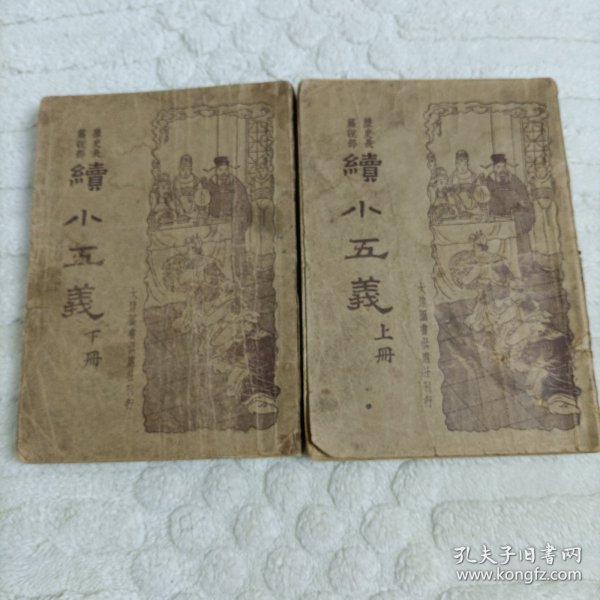 歷史長
篇說部
續小五義
下冊
大達圖書供應社刊行
歷史長
篇說部
續小五義
上冊
大達圖書供應社刊行
孔夫子旧书网
www.kongfz.com